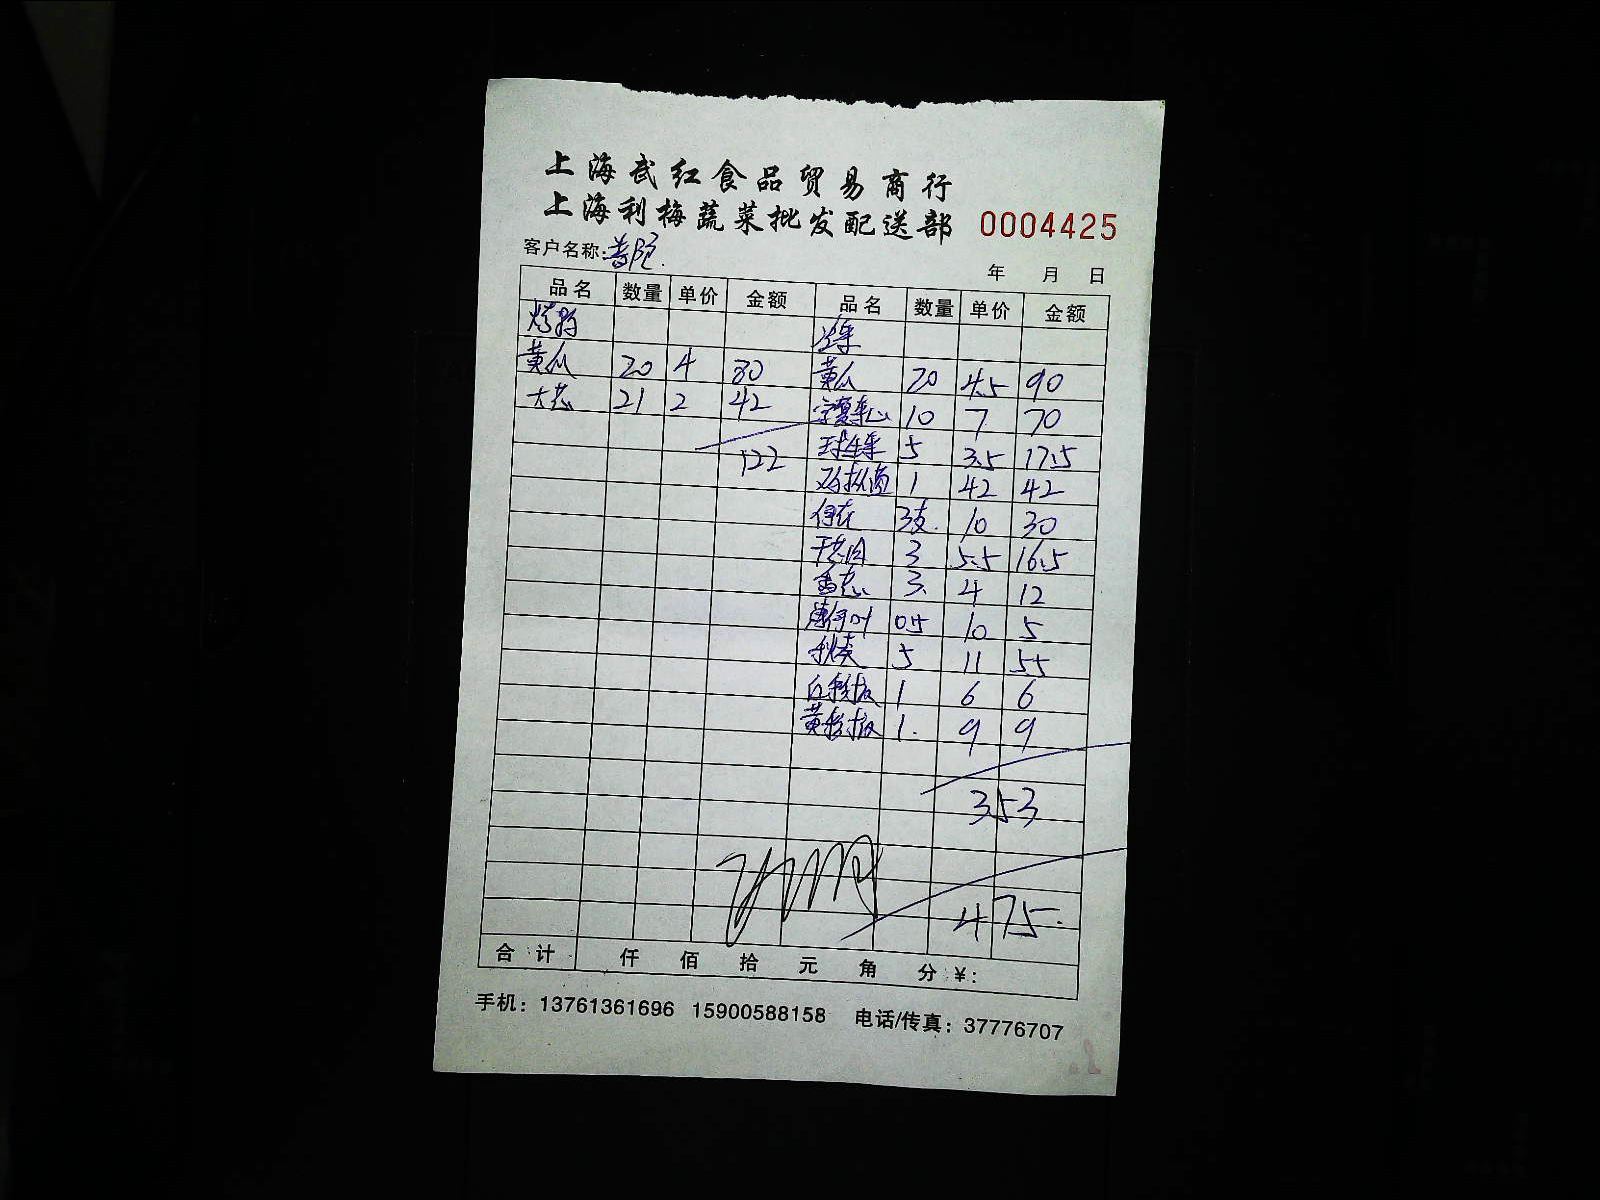 上海武红食品贸易商行
上海利梅蔬菜批发配送部 0004425
客户名称:普陀.
年 月 日
品名 数量 单价 金额 品名 数量 单价 金额
黄瓜 20 4 80 黄瓜 20 4.5 90
大葱 21 2 42 10 7 70
球生菜 5 3.5 17.5
122
1 42 42
3支. 10 30
3 5.5 16.5
香葱 3. 4 12
薄荷叶 0.5 10 5
5 11 55
红彩椒 1 6 6
黄彩椒 1. 9 9
353
475.
合计 仟 佰 拾 元 角 分 ¥:
手机: 13761361696 15900588158 电话/传真: 37776707